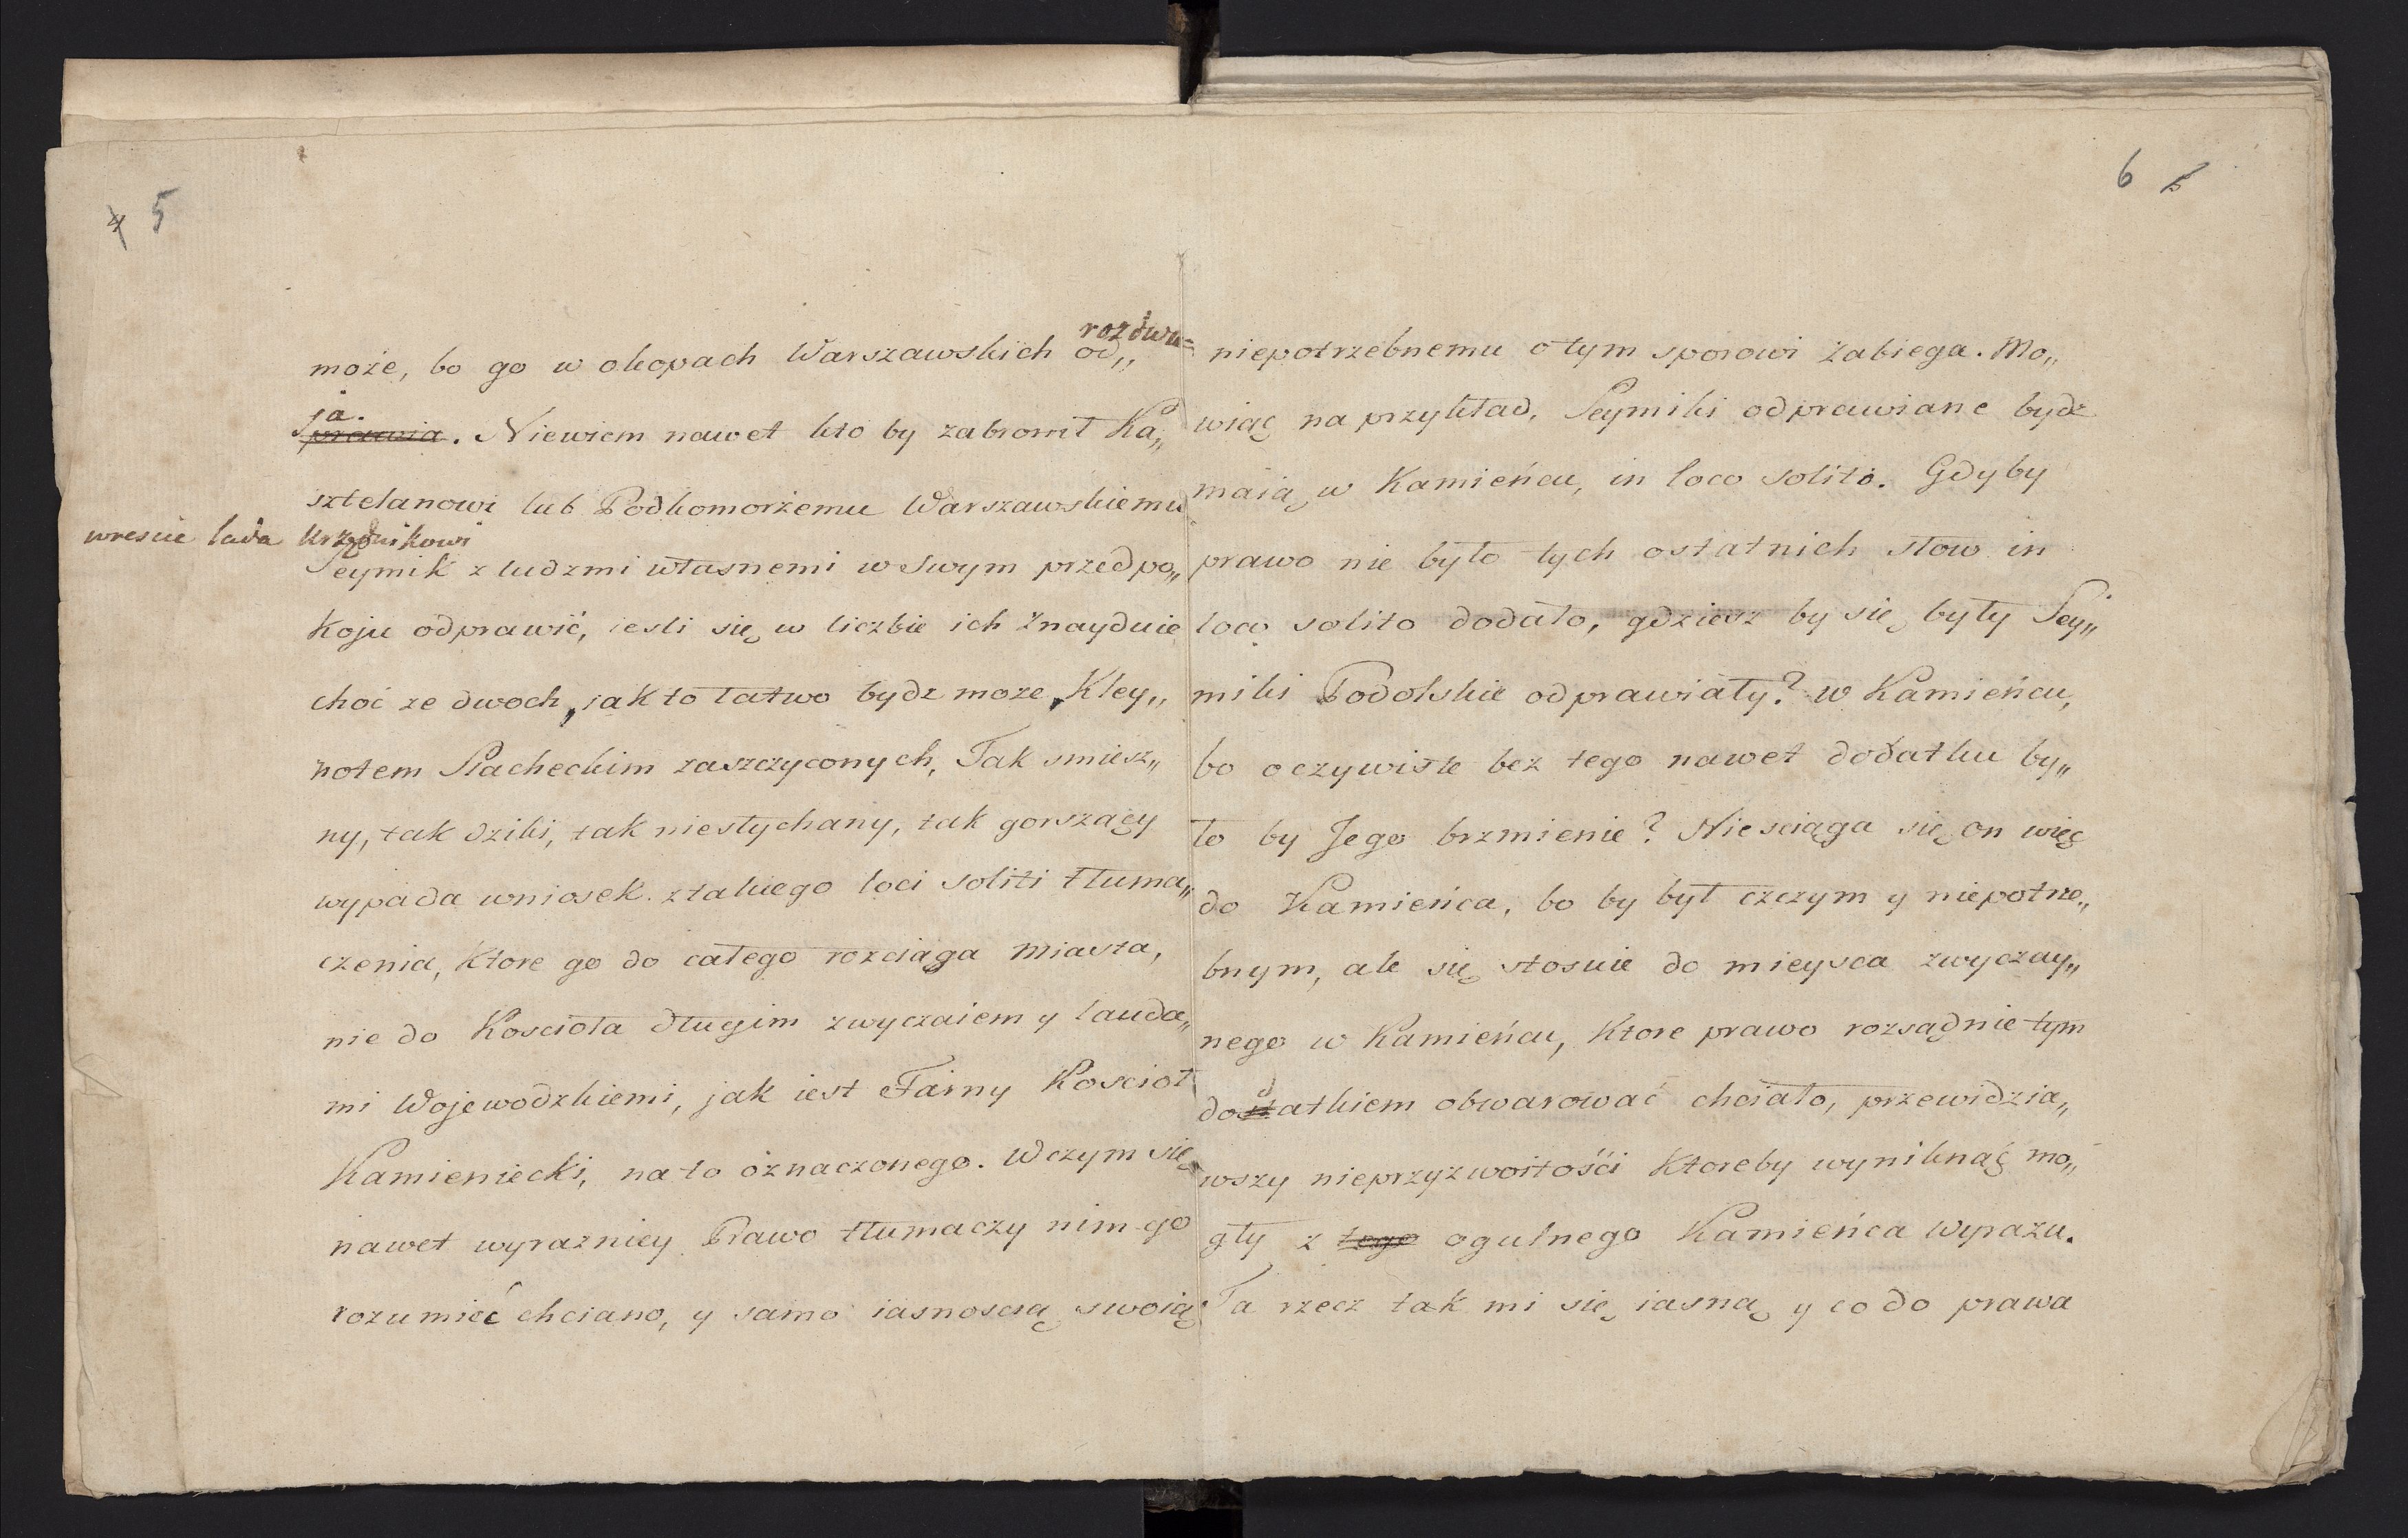 4 5
może, bo go w okopach Warszawskich od„ rozdwa=
ja.
prawia. Niewiem nawet kto by zabronił Ka„
sztelanowi lub Podkomorżemu Warszawskiemu
wrescie lada Urzędnikowi
Seymik z ludzmi własnemi w swym przedpo„
koju odprawić, iesli się w liczbie ich znayduie
choć ze dwoch, jak to łatwo bydz może, Kley„
notem Slacheckim zaszczyconych, Tak smiesz„
ny, tak dziki, tak niesłychany, tak gorszący
wypada wniosek z takiego loci soliti tłuma„
czenia, Ktore go do całego rozciąga Miasta,
nie do Kosciola długim zwyczaiem y lauda„
mi Wojewodzkiemi, jak iest Farny Kosciol
Kamieniecki, na to oznaczonego. W czym się
nawet wyrazniey Prawo tłumaczy nim go
rozumieć chciano, y samo iasnoscią swoią
6 5
niepotrzebnemu o tym sporowi zabiega. Mo„
wiąc na przykład, Seymiki odprawiane bydz
maią w Kamieńcu, in loco solito. Gdyby
prawo nie było tych ostatnich słow in
loco solito dodało, gdziesz by się były Sey„
miki Podolskie odprawiały? w Kamieńcu,
bo oczywiste bez tego nawet dodatku by„
ło by Jego brzmienie? Nie sciąga się on więc
do Kamieńca, bo by był czczym y niepotrze„
bnym, ale się stosuie do mieysca zwyczay„
nego w Kamieńcu, Ktore prawo rozsądnie tym
d
dostatkiem obwarować chciało, przewidzia„
wszy nieprzyzwoitości Ktoreby wyniknąć mo„
gły z tego ogulnego Kamieńca wyrazu.
Ta rzecz tak mi się iasną y co do prawa